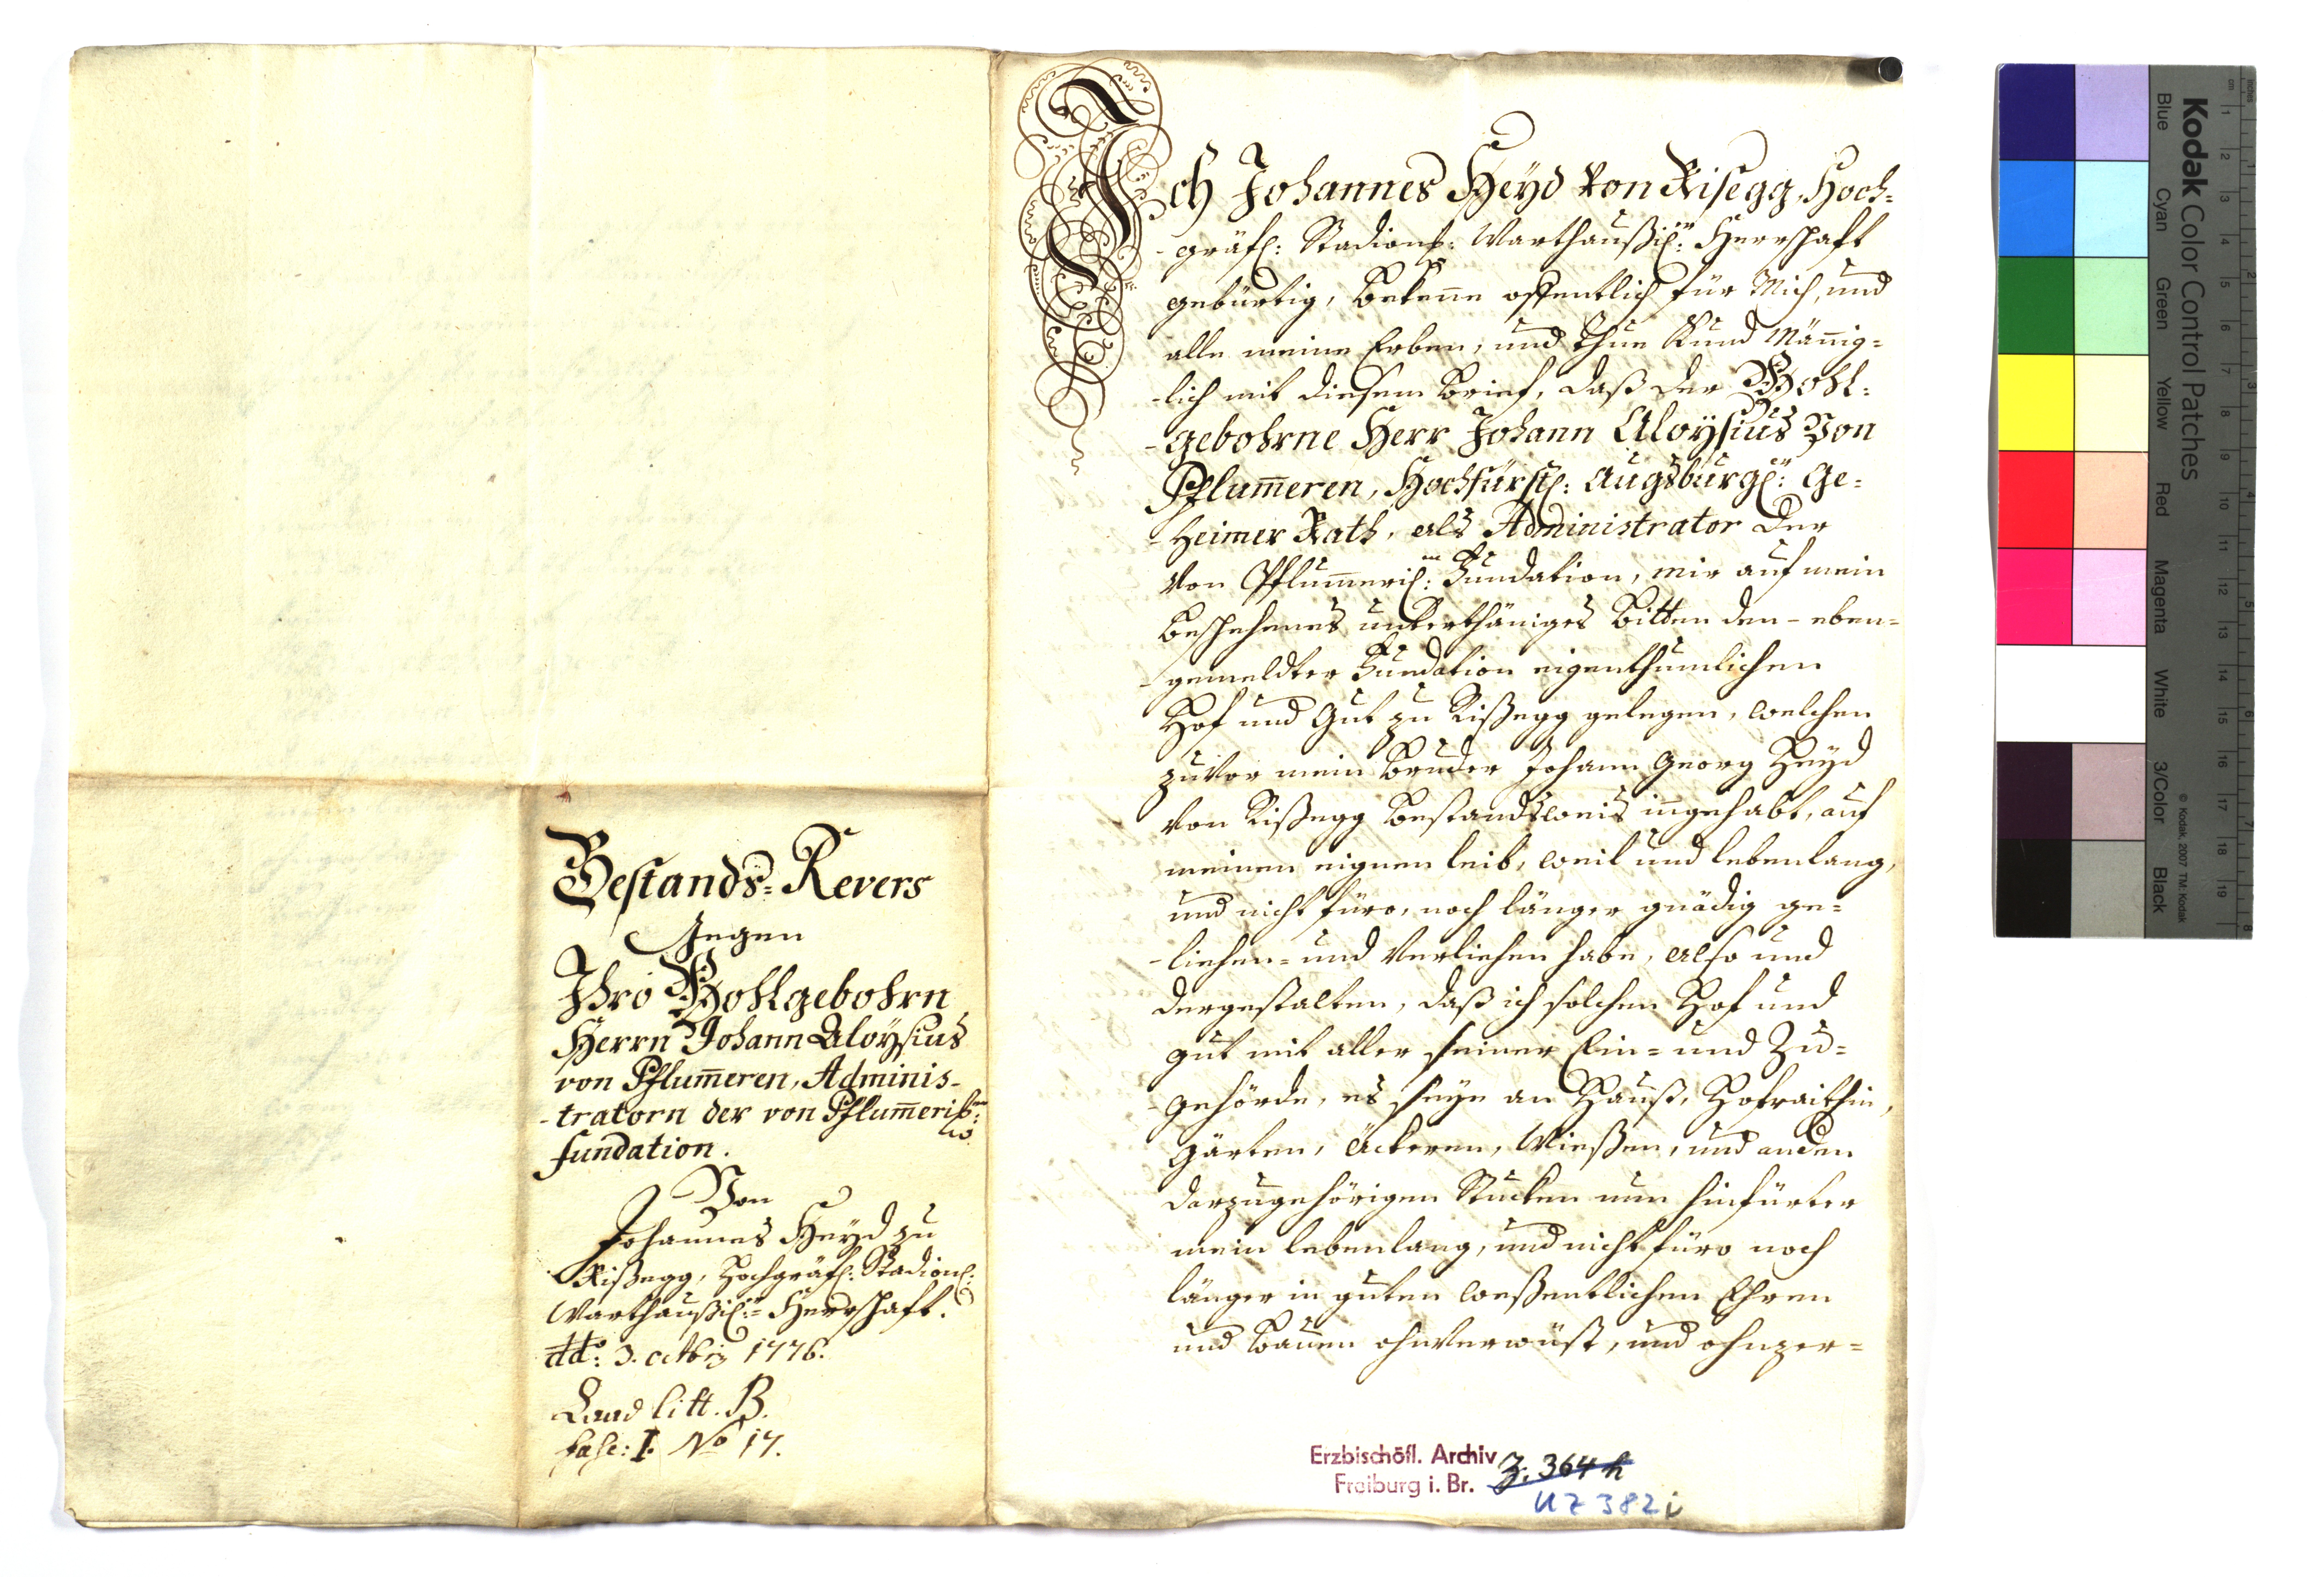 Bestands-Revers
Gegen
Ihro Wohlgebohrn
Herrn Johann Aloÿsius
von Pflum̄eren, Adminis-
-tratorn der von Pflum̄eris:
fundation.
Von
Johannes Heyd zu
Rißegg, Hochgräfl: Stadionl:
Warthaußis: Herrschaft.
dd:o 3. octbris 1776.
Laad litt. B.
fasc: I. No 17.
Ich Johannes Heyd von Risegg, Hoch-
-gräfl: Stadions: Warthaußis: Herrschaft
gebürtig, Beken̄e offentlich für Mich, und
alle meine Erben, und Thue Kund Män̄ig-
-lich mit diesem Brief, daß der Wohl-
-gebohrne Herr Johann Aloysius Von
Pflum̄eren, Hochfürstl: Augsburgl: Ge-
-Heimer Rath, als Administrator der
Von Pflum̄eris: Fundation, mir auf mein
Beschehenes unterthäniges Bitten den-eben-
-gemeldter Fundation eigenthumlichen
Hof und Gut zu Rißegg gelegen, welchen
zuvor mein Bruder Johann Georg Heyd
von Rißegg Bestandsweis in̄gehabt, auf
meinen eignen leib, weil und lebenlang,
und nicht füro, noch länger gnädig ge-
-liehen- und Verliehen habe, also und
dergestalten, daß ich solchen Hof und
gut mit aller seiner Ein- und Zu-
-gehörde, es seye an Hauß, Hofraithin,
Gärten, Äckeren, Wießen, und anden
darzugehörigen Stucken nun hinfürter
mein lebenlang, und nicht füro noch
länger in guten weßentlichen Ehren
und Bauen ohnverwüst, und ohnzer-
Erzbischöfl. Archiv
Freiburg i. Br.
Z. 364 h
UZ 382 i
Kodak Color Control Patches
Blue Cyan Green Yellow Red Magenta White 3/Color Black
© Kodak, 2007 TM: Kodak
cm 1 2 3 4 5 6 7 8 9 10 11 12 13 14 15 16 17 18 19
inches 1 2 3 4 5 6 7 8